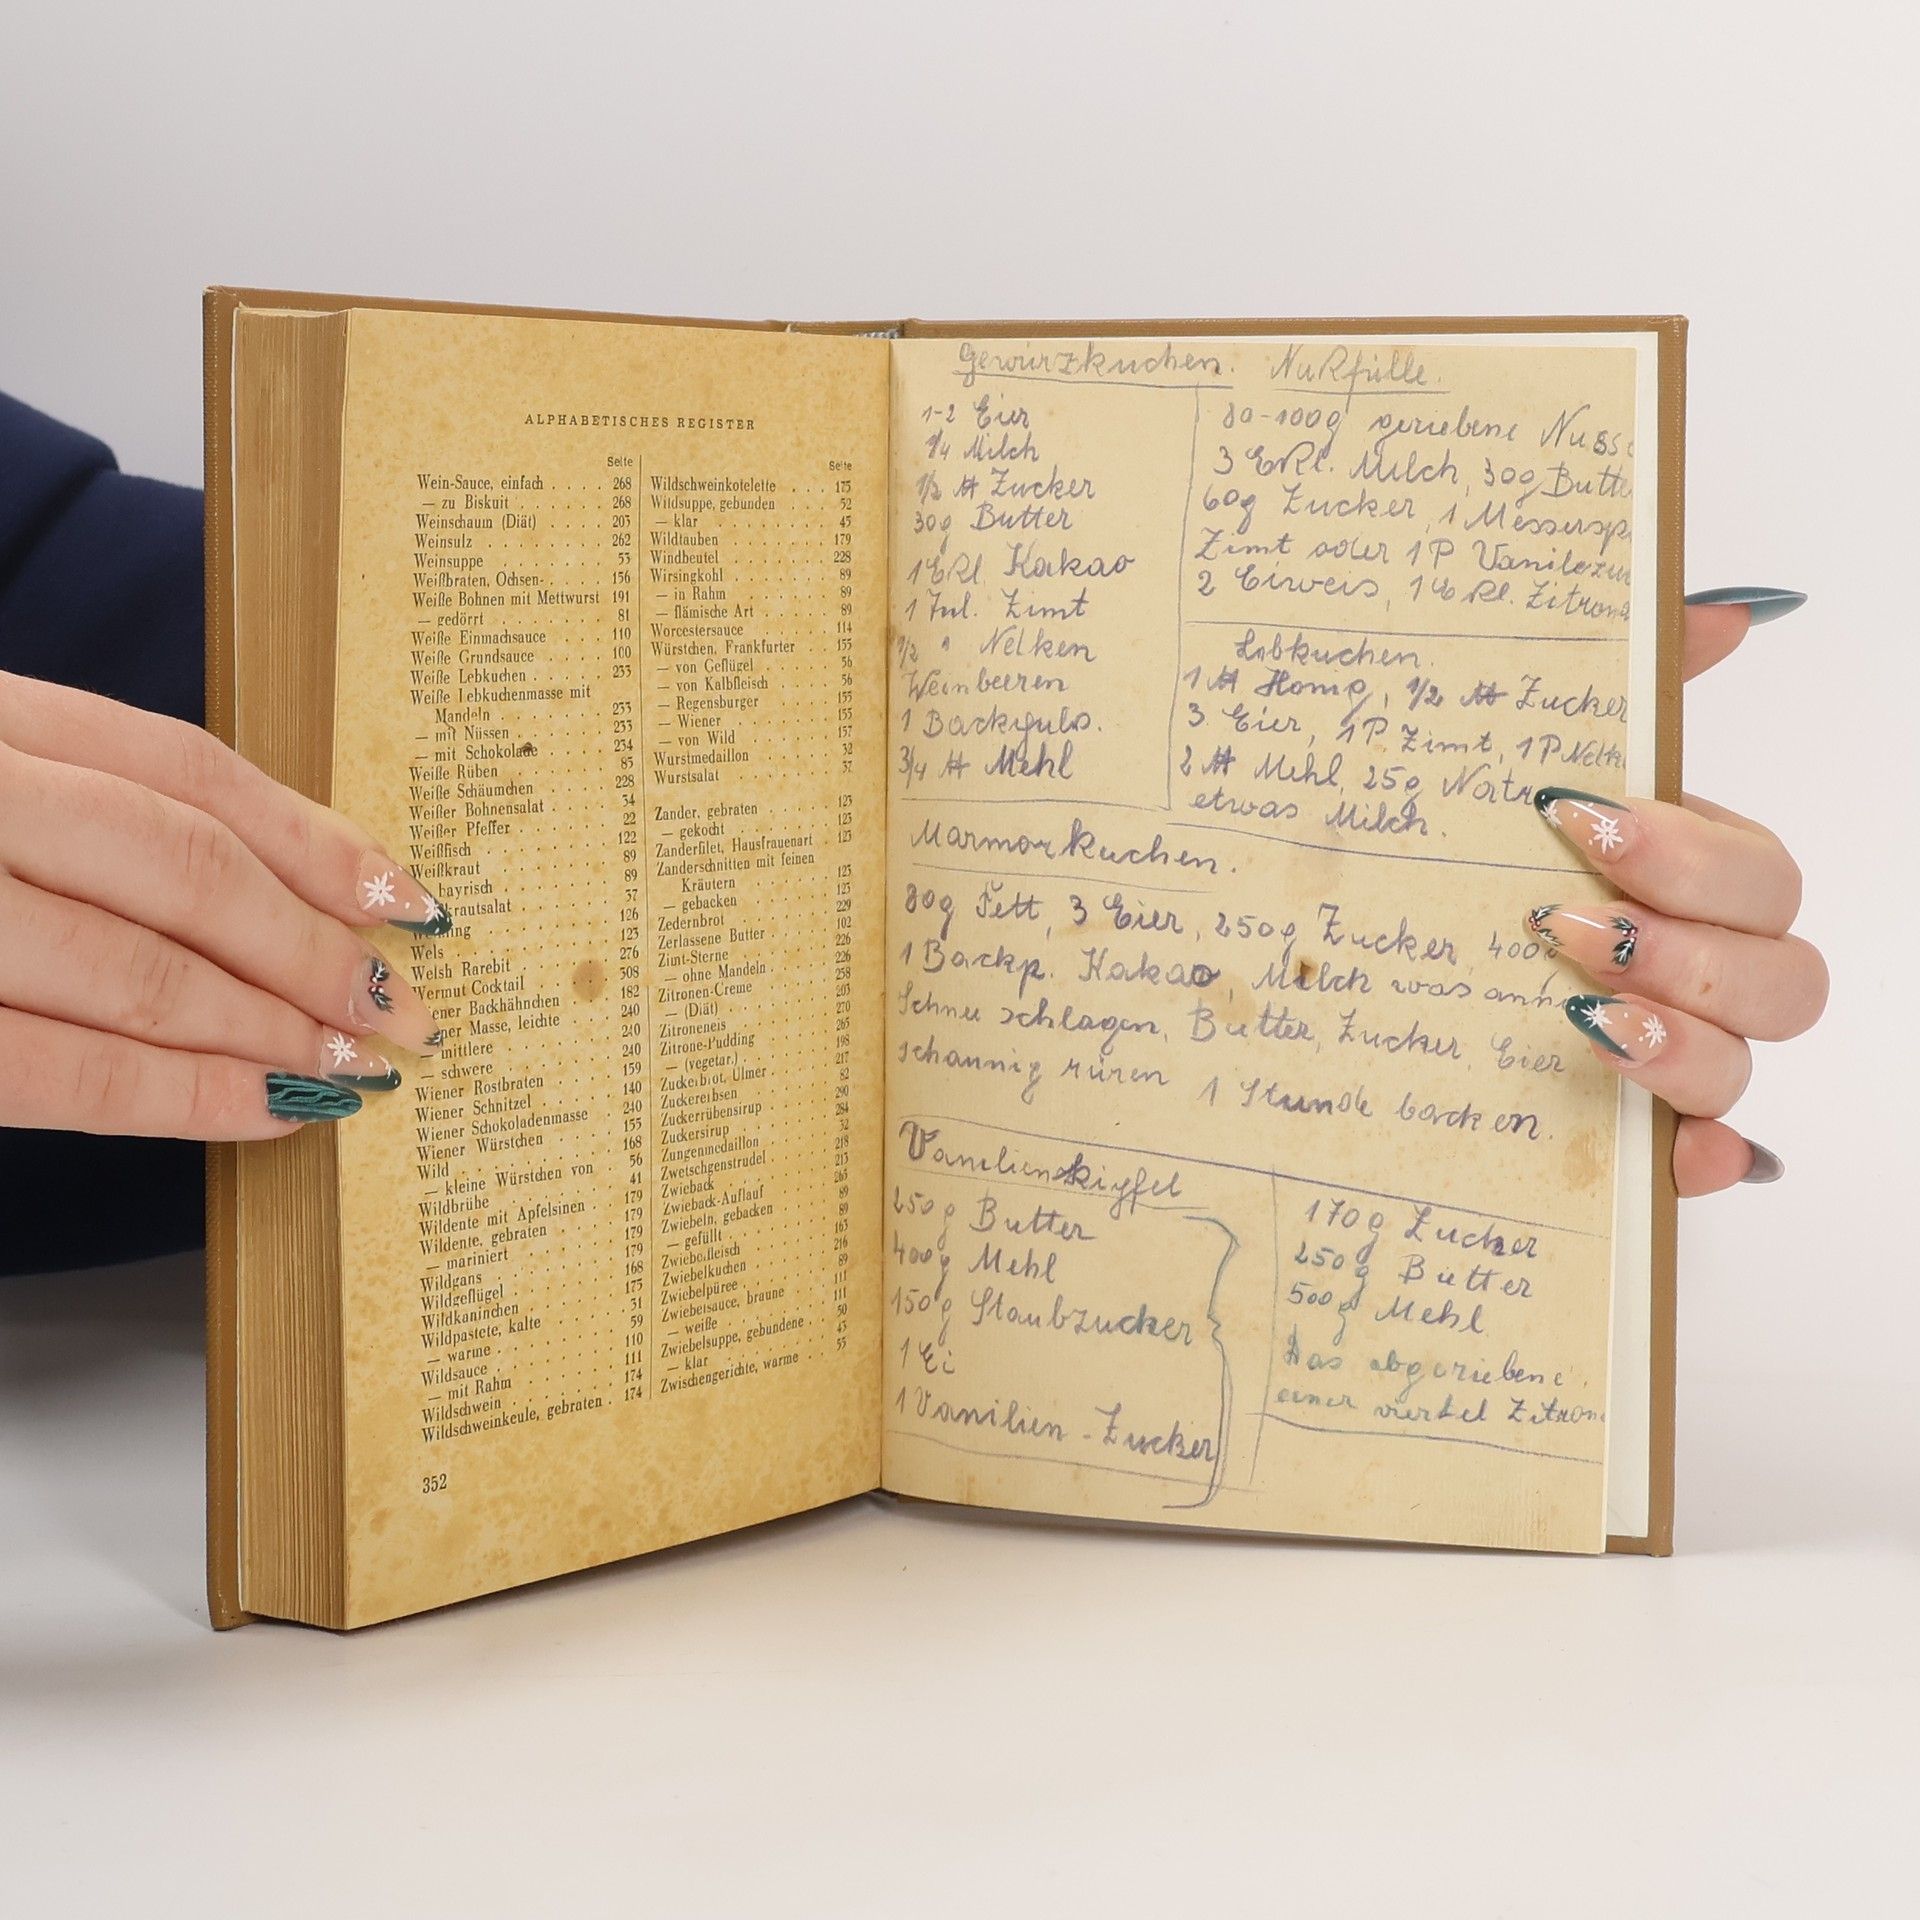 ALPHABETISCHES REGISTER
Seite
Wein-Sauce, einfach . . . . 268
— zu Biskuit . . . . . . 268
Weinschaum (Diät) . . . . . 203
Weinsulz . . . . . . . . 262
Weinsuppe . . . . . . . . 53
Weißbraten, Ochsen- . . . . 156
Weiße Bohnen mit Mettwurst 191
— gedörrt . . . . . . . 81
Weiße Einmachsauce . . . 110
Weiße Grundsauce . . . . 100
Weiße Lebkuchen . . . . . 233
Weiße Lebkuchenmasse mit
Mandeln . . . . . . . 233
— mit Nüssen . . . . . . 233
— mit Schokolade . . . . 234
Weiße Rüben . . . . . . . 85
Weiße Schäumchen . . . . 228
Weißer Bohnensalat . . . . 34
Weißer Pfeffer . . . . . . 22
Weißfisch . . . . . . . . 122
Weißkraut . . . . . . . . 89
bayrisch . . . . . . . 89
krautsalat . . . . . . 37
126
Wels . . . . . . . . . . 123
Welsh Rarebit . . . . . . 276
Wermut Cocktail . . . . . 308
ener Backhähnchen . . . 182
ner Masse, leichte . . . . 240
— mittlere . . . . . . . 240
— schwere . . . . . . . 240
Wiener Rostbraten . . . . 159
Wiener Schnitzel . . . . . 140
Wiener Schokoladenmasse . 240
Wiener Würstchen . . . . 155
Wild . . . . . . . . . . 168
— kleine Würstchen von . 56
Wildbrühe . . . . . . . . 41
Wildente mit Apfelsinen . . 179
Wildente, gebraten . . . . 179
— mariniert . . . . . . 179
Wildgans . . . . . . . . 179
Wildgeflügel . . . . . . . 168
Wildkaninchen . . . . . . 175
Wildpastete, kalte . . . . . 31
— warme . . . . . . . . 59
Wildsauce . . . . . . . . 110
— mit Rahm . . . . . . . 111
Wildschwein . . . . . . . 174
Wildschweinkeule, gebraten . 174
352
Seite
Wildschweinkotelette . . . 175
Wildsuppe, gebunden . . . 52
— klar . . . . . . . . 45
Wildtauben . . . . . . . 179
Windbeutel . . . . . . . 228
Wirsingkohl . . . . . . . 89
— in Rahm . . . . . . . 89
— flämische Art . . . . . 89
Worcestersauce . . . . . 114
Würstchen, Frankfurter . . 155
— von Geflügel . . . . . 56
— von Kalbfleisch . . . . 56
— Regensburger . . . . . 155
— Wiener . . . . . . . 155
— von Wild . . . . . . 157
Wurstmedaillon . . . . . 32
Wurstsalat . . . . . . . 37
Zander, gebraten . . . . . 123
— gekocht . . . . . . . 123
Zanderfilet, Hausfrauenart . 123
Zanderschnitten mit feinen
Kräutern . . . . . . 123
— gebacken . . . . . . 123
Zedernbrot . . . . . . . 229
Zerlassene Butter . . . . . 102
Zimt-Sterne . . . . . . . 226
— ohne Mandeln . . . . . 226
Zitronen-Creme . . . . . 258
— (Diät) . . . . . . . 203
Zitroneneis . . . . . . . 270
Zitrone-Pudding . . . . . 265
— (vegetar.) . . . . . . 198
Zuckerbrot, Ulmer . . . . 217
Zuckererbsen . . . . . . 82
Zuckerrübensirup . . . . 290
Zuckersirup . . . . . . . 284
Zungenmedaillon . . . . . 32
Zwetschgenstrudel . . . . 218
Zwieback . . . . . . . . 213
Zwieback-Auflauf . . . . 265
Zwiebeln, gebacken . . . . 89
— gefüllt . . . . . . . 89
Zwiebelfleisch . . . . . . 163
Zwiebelkuchen . . . . . . 216
Zwiebelpüree . . . . . . 89
Zwiebelsauce, braune . . . 111
— weiße . . . . . . . . 111
Zwiebelsuppe, gebundene . . 50
— klar . . . . . . . . 43
Zwischengerichte, warme . . 55
Gewürzkuchen.
1-2 Eier
1/4 Milch
1/2 ℔ Zucker
30g Butter
1 Eßl. Kakao
1 Zimt
1/2 " Nelken
Weinbeeren
1 Backpulv.
3/4 ℔ Mehl
Nußfülle.
80-100g geriebene Nüsse
3 Eßl. Milch, 30g Butte
60g Zucker, 1 Messersp
Zimt oder 1 P Vanilezu
2 Eiweis, 1 Eßl. Zitrona
Lebkuchen.
1 ℔ Honig, 1/2 ℔ Zucker
3 Eier, 1 P. Zimt, 1 P Nelk
2 ℔ Mehl, 25g Natr
etwas Milch.
Marmorkuchen.
80g Fett, 3 Eier, 250g Zucker, 400g
1 Backp. Kakao, Milch was anni
Schnee schlagen, Butter, Zucker, Eier
schaumig rüren 1 Stunde backen.
Vanilienkipfel
250g Butter
400g Mehl
150g Staubzucker
1 Ei
1 Vanilien-Zucker
170g Zucker
250g Butter
500g Mehl
Das abgeriebene
einer viertel Zitron